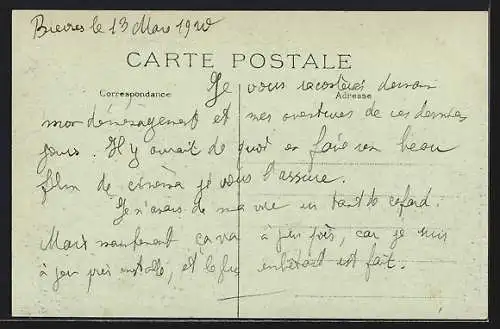 Bièvres le 13 Mars 1920
CARTE POSTALE
Correspondance
Adresse
Je vous raconterai demain
mon déménagement et mes aventures de ces derniers
jours. Il y aurait de quoi en faire un beau
film de cinéma je vous l'assure.
Je n'avais de ma vie un tant de cafard.
Mais maintenant ça va à peu près, car je suis
à peu près installé, et le plus embêtant est fait.